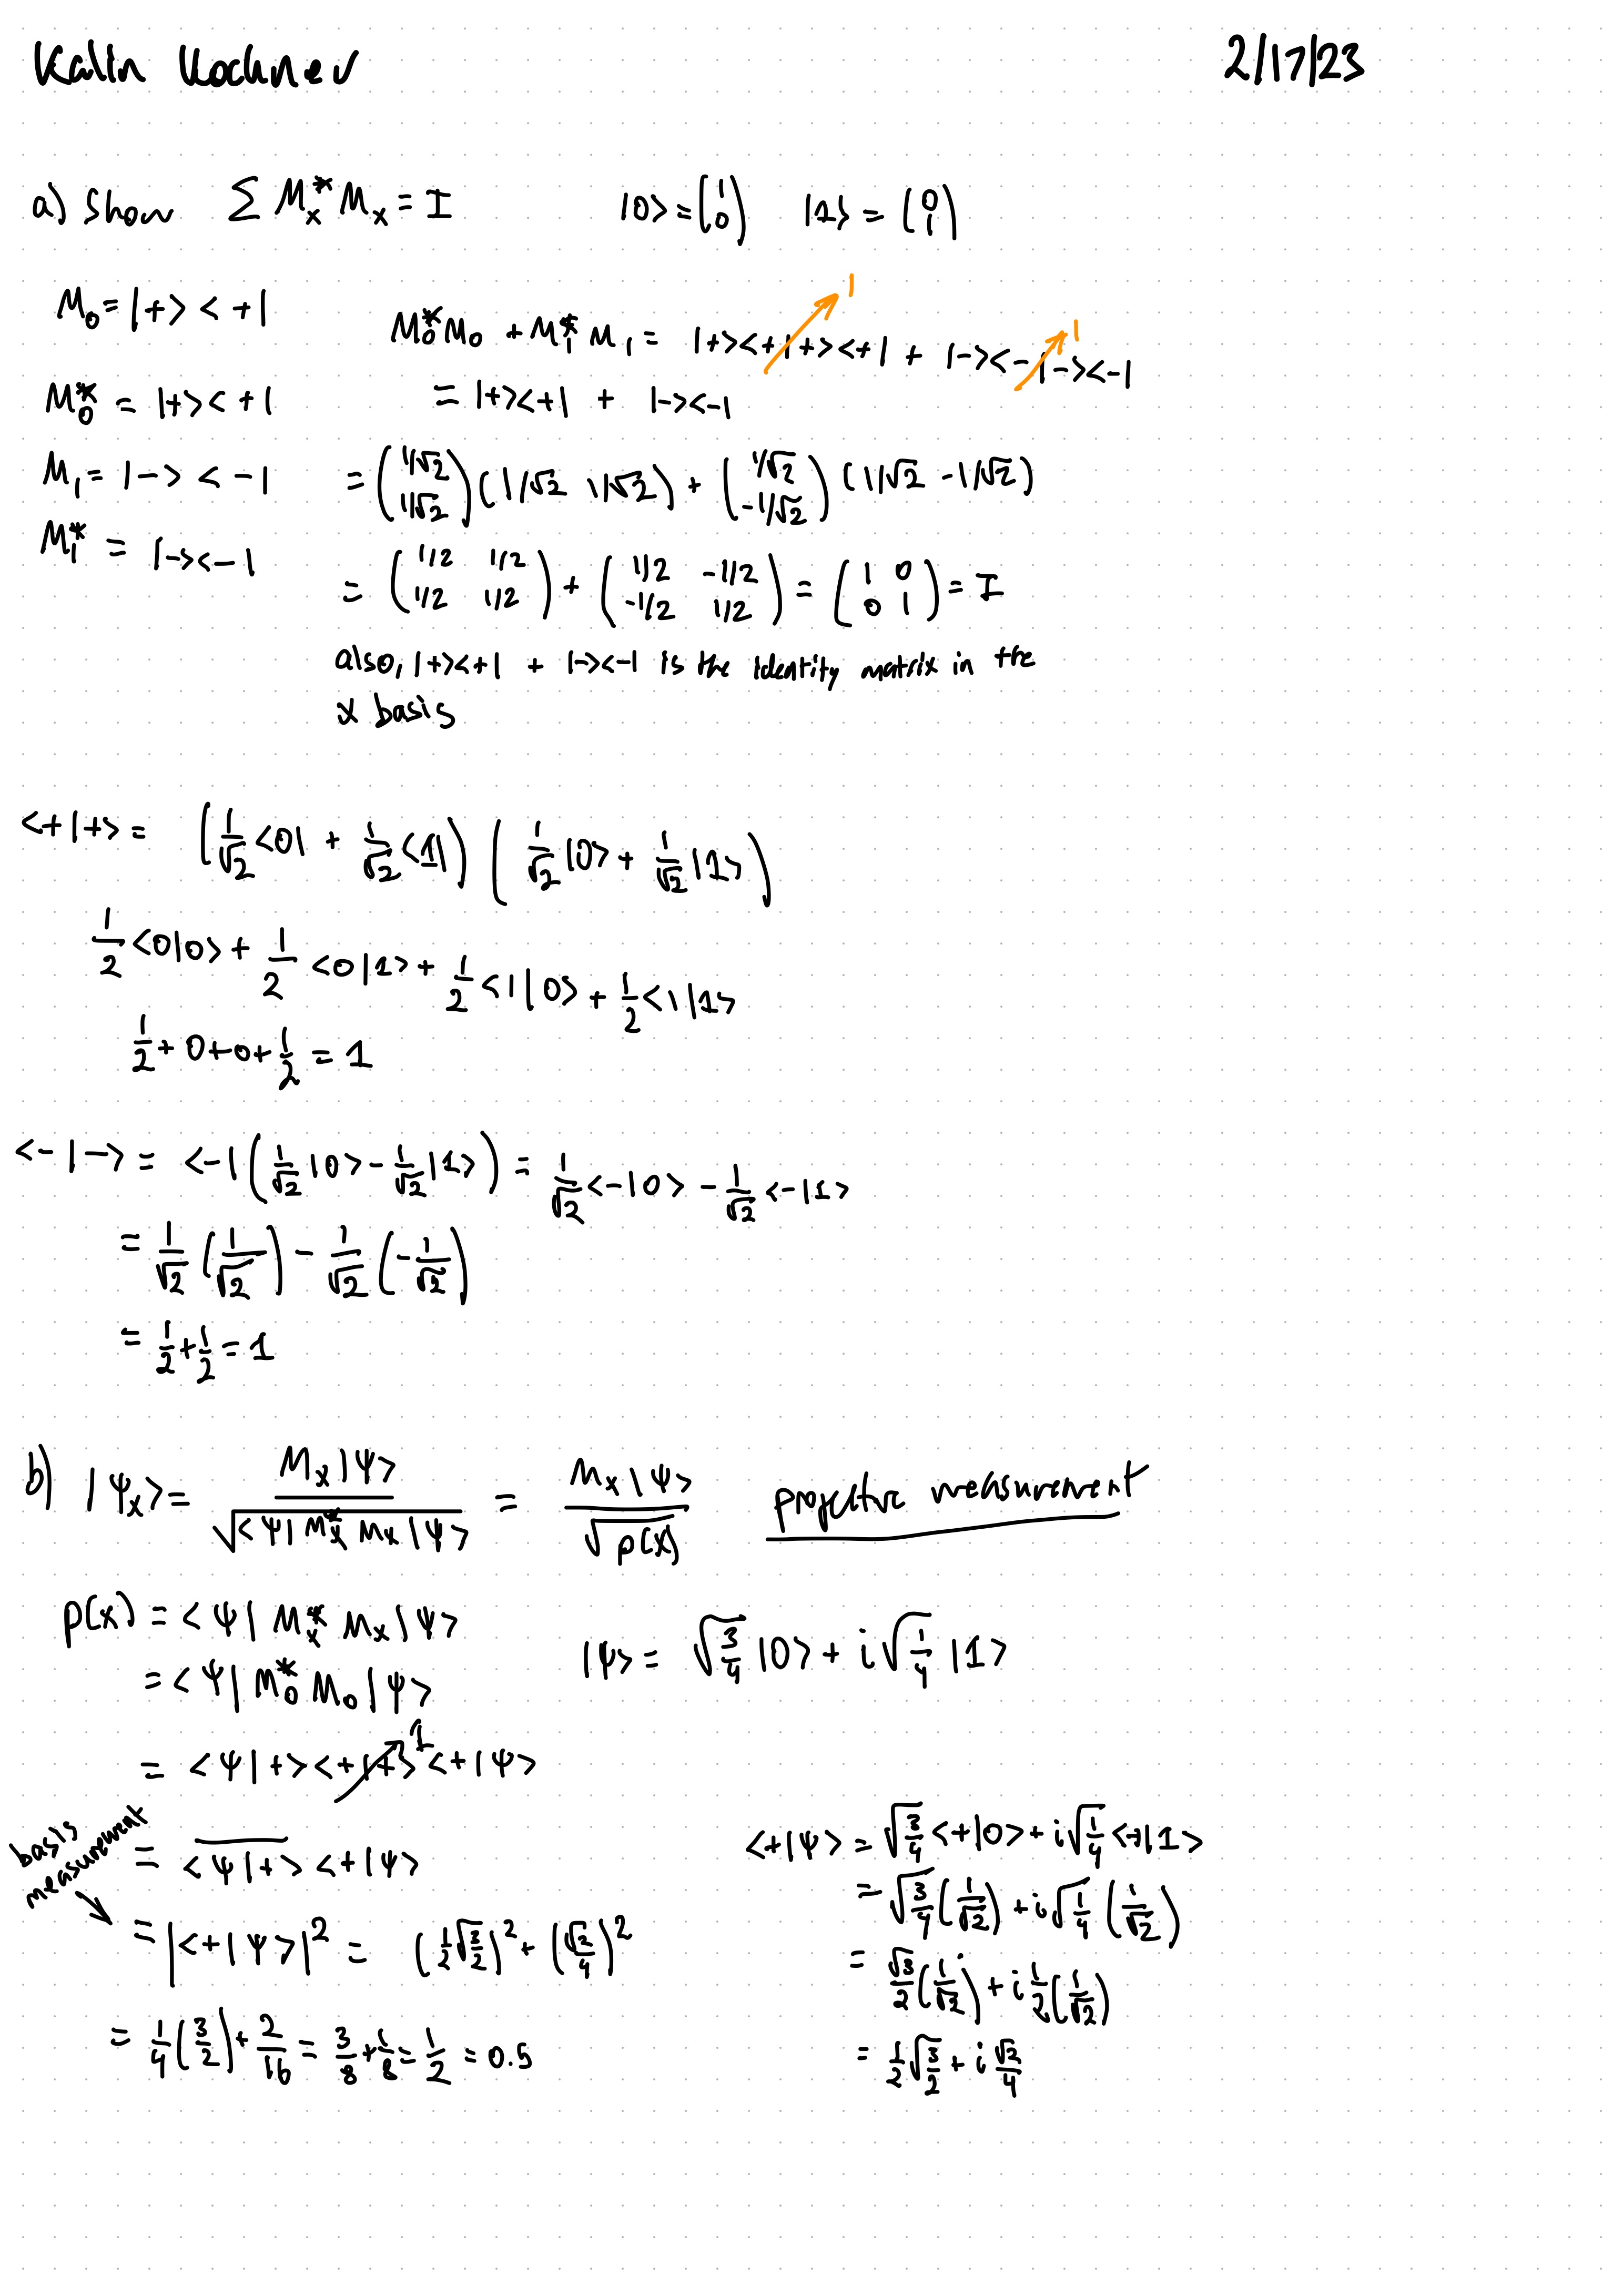 Kalin Kochnev 2/17/23
a) Show Σ M_x^* M_x = I |0> = (1 0) |1> = (0 1)
M_0 = |+> < +|
M_0^* M_0 + M_1^* M_1 = |+><+|+><+| + |-><-|-><-| 1 1
M_0^* = |+>< +|
= |+><+| + |-><-|
M_1 = |-> < -|
= (1/√2 1/√2) (1/√2 1/√2) + (1/√2 -1/√2) (1/√2 -1/√2)
M_1^* = |-><-|
= (1/2 1/2 1/2 1/2) + (1/2 -1/2 -1/2 1/2) = (1 0 0 1) = I
also, |+><+| + |-><-| is the identity matrix in the
x basis
<+|+> = (1/√2 <0| + 1/√2 <1|) (1/√2 |0> + 1/√2 |1>)
1/2 <0|0> + 1/2 <0|1> + 1/2 <1|0> + 1/2 <1|1>
1/2 + 0 + 0 + 1/2 = 1
<-|-> = <-| (1/√2 |0> - 1/√2 |1>) = 1/√2 <-|0> - 1/√2 <-|1>
= 1/√2 (1/√2) - 1/√2 (-1/√2)
= 1/2 + 1/2 = 1
b) |Ψ_x> = M_x|Ψ> / √<Ψ|M_x^* M_x|Ψ> = M_x|Ψ> / √p(x) projective measurement
p(x) = <Ψ| M_x^* M_x |Ψ>
|Ψ> = √(3/4) |0> + i√(1/4) |1>
= <Ψ| M_0^* M_0 |Ψ>
= <Ψ|+><+|+><+|Ψ> 1
basis measurement
= <Ψ|+> <+|Ψ>
= |<+|Ψ>|^2 = (1/2 √(3/2))^2 + (√2/4)^2
= 1/4 (3/2) + 2/16 = 3/8 + 1/8 = 1/2 = 0.5
<+|Ψ> = √(3/4) <+|0> + i√(1/4) <+|1>
= √(3/4) (1/√2) + i√(1/4) (1/√2)
= √3/2 (1/√2) + i 1/2 (1/√2)
= 1/2 √(3/2) + i √2/4